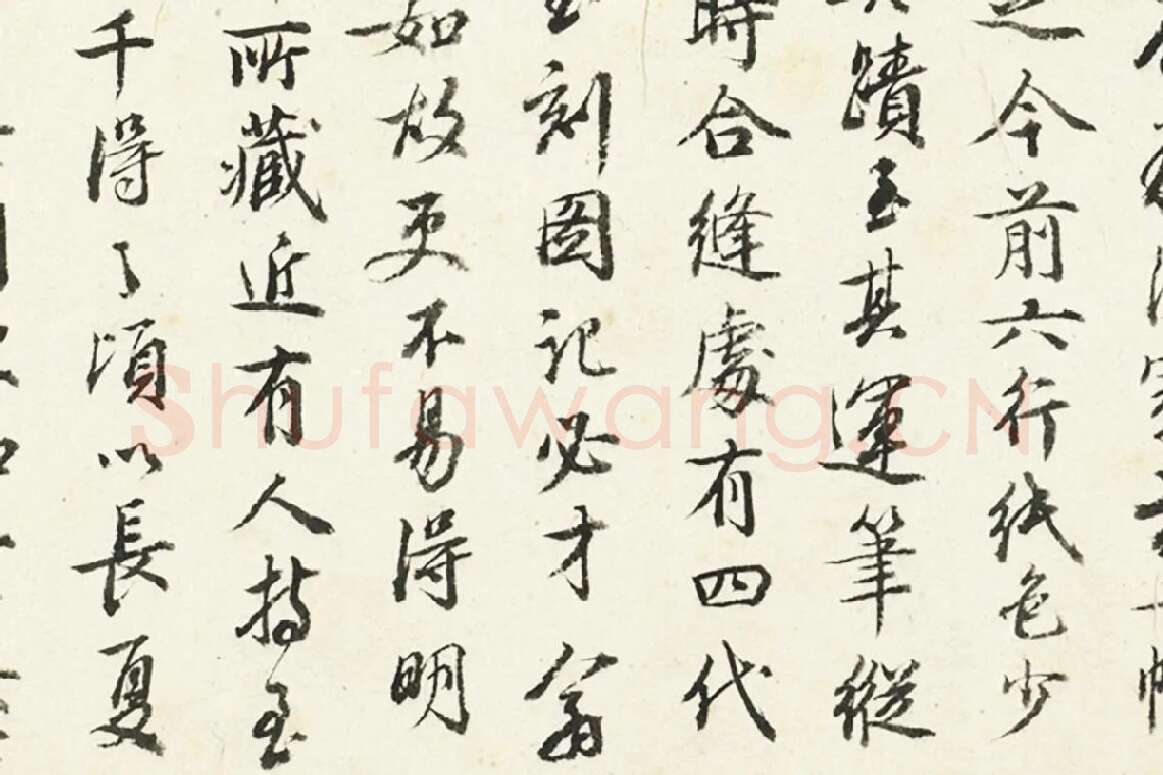 之今前六行紙色少
蹟至其運筆縱
時合縫處有四代
至刻圖記必才翁
如故更不易得明
所藏近有人持至
千得之頃以長夏
Shufawang.CN